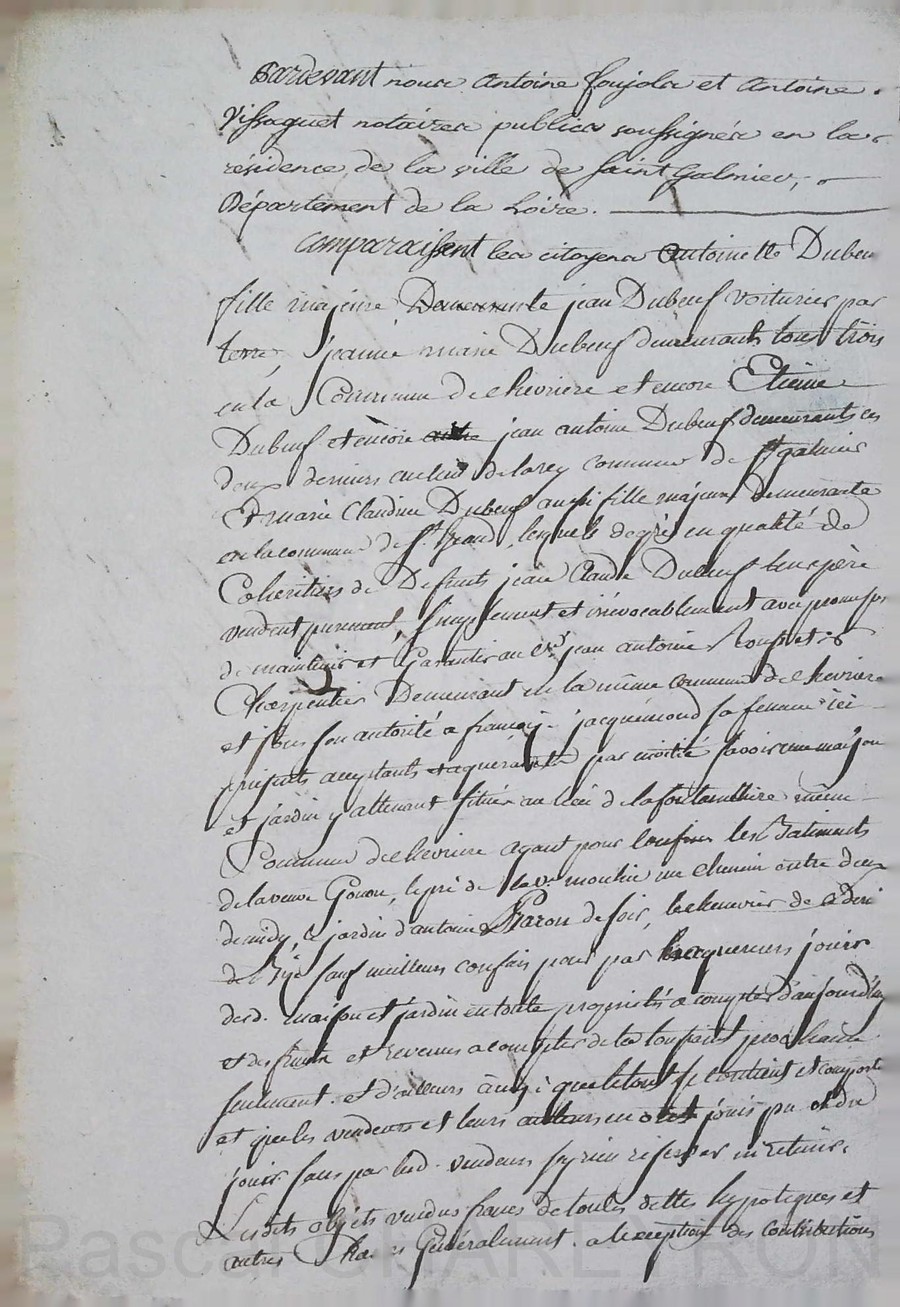 Pardevant nous Antoine Foujols et Antoine
Vissaguet notaires publics soussignés en la
résidence de la ville de Saint Galmier,
Département de la Loire.
Comparaissent les citoyens Antoinette Dubeuf
fille majeure Demeurante jean Dubeuf voiturier par
terre, jeanne marie Dubeuf demeurants tous trois
en la Commune de chevriere et encore Etienne
Dubeuf et encore jean antoine Dubeuf demeurants ces
deux derniers au lieu de commune de St galmier
Et marie Claudine Dubeuf aussi fille majeure demeurante
en la commune de St heand, lesquels de gré en qualité de
Coheritiers de Defunts jean Claude Dubeuf leur père
vendent purement, simplement et irrévocablement avec promesse
de maintenir et Garantir au jean antoine
Charpentier Demeurant en la même commune de chevriere
et sous son autorité a françoise jacquemond sa femme ici
présents acceptants et aquerants par moitié savoir une maison
et jardin y attenant situés au lieu de la fontaulliere même
Commune de chevriere ayant pour confins les Batiments
de la veuve Gonon, le pré de moulin un chemin entre deux
de midy, le jardin d'antoine de soir, le chenevier de
de Bise sauf meilleurs confins pour par les aquereurs jouir
desd. maison et jardin en toute propriété a compter d'aujourd'huy
et des fruits et revenus a compter de la toussaint prochaine
seulement. et d'ailleurs ainsi que le tout se contient et comporte
et que les vendeurs et leurs auteurs en ont jouis pu et du
jouir sans par lesd. vendeurs sy rien reserver ni retenir.
Lesdits objets vendus francs de toutes dettes hypoteques et
autres Charges Généralement. a lexception des contributions
Pascal CHAREYRON